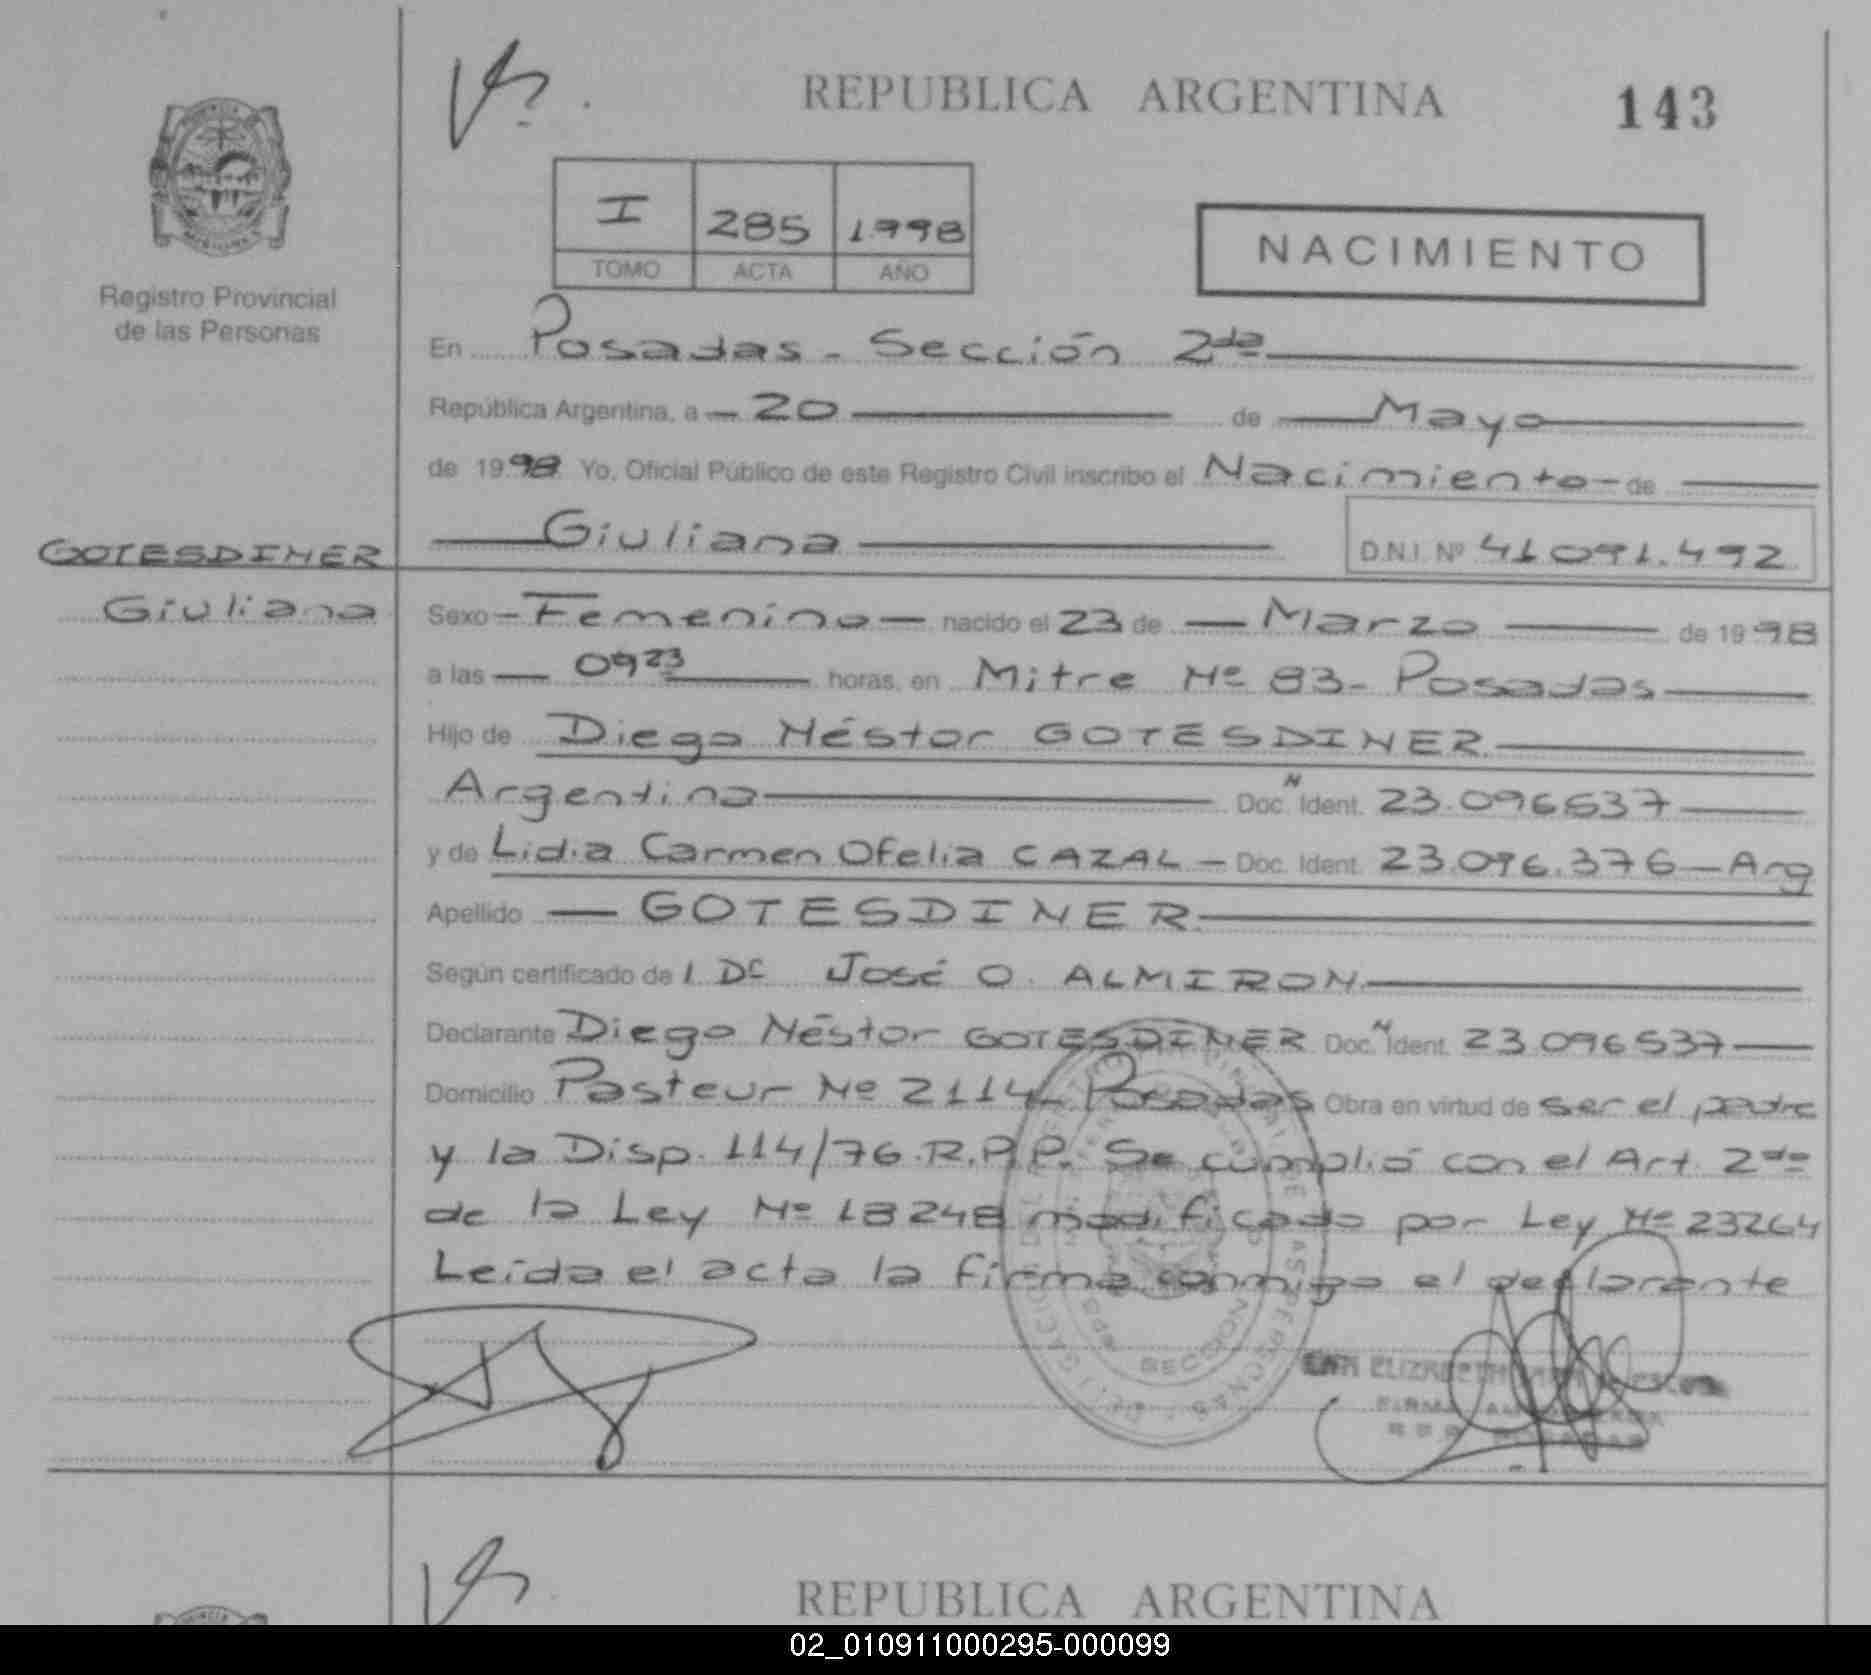 REPUBLICA ARGENTINA 143
I 285 1998
TOMO ACTA AÑO
NACIMIENTO
Registro Provincial
de las Personas
En Posadas - Sección 2da
República Argentina, a 20 de Mayo
de 1998 Yo, Oficial Público de este Registro Civil inscribo el Nacimiento de
Giuliana D.N.I. Nº 41091.492
GOTESDINER
Giuliana
Sexo Femenino nacido el 23 de Marzo de 1998
a las 0923 horas, en Mitre Nº 83 - Posadas
Hijo de Diego Néstor GOTESDINER
Argentina Doc. N Ident. 23.096537
y de Lidia Carmen Ofelia CAZAL - Doc. Ident. 23.096.376 - Arg
Apellido GOTESDINER
Según certificado de l Dr José O. ALMIRON
Declarante Diego Néstor GOTESDINER Doc. N Ident. 23.096537
Domicilio Pasteur Nº 2114 - Posadas Obra en virtud de ser el padre
y la Disp. 114/76 R.P.P. Se cumplió con el Art. 2do
de la Ley Nº 18248 modificado por Ley Nº 23264
Leída el acta la firma conmigo el declarante
REPUBLICA ARGENTINA
02_010911000295-000099